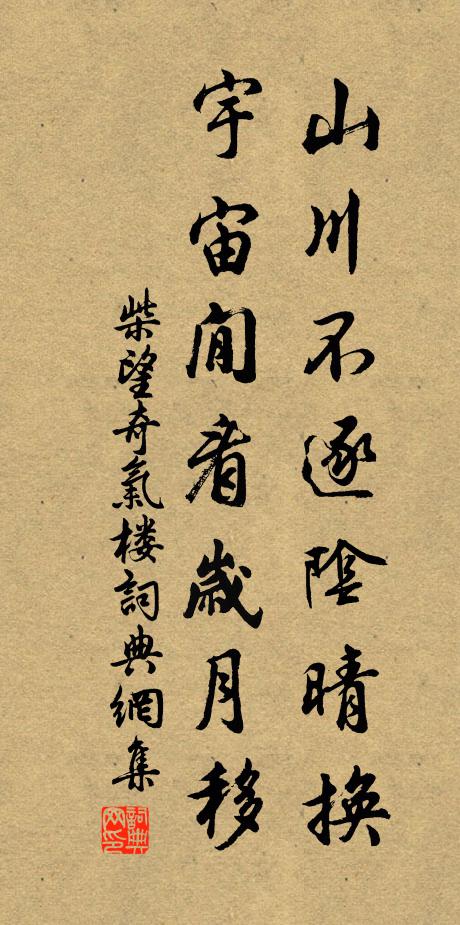 山川不逐陰晴換
宇宙閒看歲月移
柴望奇氣樓詞典網集
詞典網印